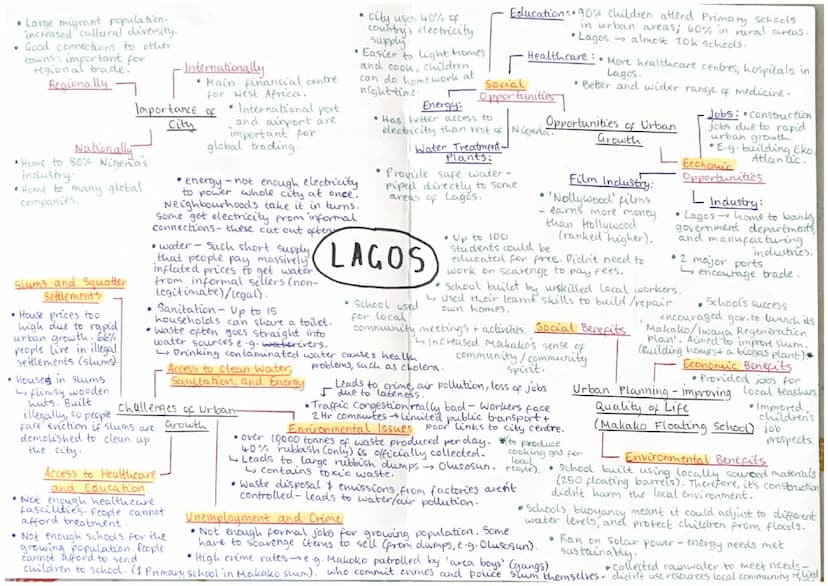 • Large migrant population-
increased cultural diversity.
• Good connections to other
towns: important for
regional trade.
Regionally
Internationally
• Main financial centre
for West Africa.
• International port
and airport are
important for
global trading.
Importance of
City
Nationally
• Home to 80% Nigeria's
industry.
• Home to many global
companies.
• City uses 40% of
country's electricity
supply.
• Easier to light homes
and cook, children
can do homework at
nighttime.
Energy:
• Has better access to
electricity than rest of Nigeria.
Water Treatment
Plants:
• Provide safe water-
piped directly to some
areas of Lagos.
Education:
• 90% children attend Primary schools
in urban areas; 60% in rural areas.
• Lagos → almost 10k schools.
Healthcare:
• More healthcare centres, hospitals in
Lagos.
• Better and wider range of medicine.
Social
Opportunities
Opportunities of Urban
Growth
Jobs: • Construction
jobs due to rapid
urban growth.
• E.g. building Eko
Atlantic.
Economic
Opportunities
Film Industry:
• 'Nollywood' films
- earns more money
than Hollywood
(ranked higher).
Industry:
• Lagos → home to banks,
government departments,
and manufacturing
industries.
• 2 major ports
↳ encourage trade.
LAGOS
• energy - not enough electricity
to power whole city at once.
Neighbourhoods take it in turns.
Some get electricity from informal
connections - these cut out often.
• water - Such short supply
that people pay massively
inflated prices to get water
from informal sellers (non-
legitimate)/legal).
• Sanitation - Up to 15
households can share a toilet.
• Waste often goes straight into
water sources e.g. rivers.
↳ Drinking contaminated water causes health
problems, such as cholera.
Access to Clean Water,
Sanitation, and Energy
Slums and Squatter
Settlements
• House prices too
high due to rapid
urban growth. 66%
people live in illegal
settlements (slums).
• Houses in slums
↳ flimsy wooden
huts. Built
illegally, so people
face eviction if slums are
demolished to clean up
the city.
Challenges of Urban
Growth
↳ Leads to crime, air pollution, loss of jobs
due to lateness.
• Traffic Congestion really bad - Workers face
2 Hr commutes → limited public transport +
poor links to city centre.
Environmental Issues
• Over 10000 tonnes of waste produced per day.
40% rubbish (only) is officially collected.
↳ Leads to large rubbish dumps → Olusosun.
↳ contains toxic waste.
• Waste disposal & emissions from factories aren't
controlled - leads to water/air pollution.
Access to Healthcare
and Education
• Not enough healthcare
fascilities. People cannot
afford treatment.
• Not enough schools for the
growing population. People
cannot afford to send
children to school. (1 Primary school in Makako slum).
Unemployment and Crime
• Not enough formal jobs for growing population. Some
have to scavenge items to sell (from dumps, e.g. Olusosun).
• High crime rates → e.g. Makoko patrolled by 'area boys' (gangs)
who commit crimes and police slum themselves.
• Up to 100
students could be
educated for free. Didn't need to
work or scavenge to pay fees.
• School built by unskilled local workers.
↳ used their learnt skills to build/repair
own homes.
• School used
for local
community meetings + activities.
↳ Increased Makako's sense of
community/community
spirit.
Social Benefits
• School's success
encouraged gov. to launch its
'Makako/Iwaya Regeneration
Plan'. Aimed to improve slum.
(Building homes + a biogas plant)*
Economic Benefits
• Provided jobs for
local teachers.
• Improved
children's
job
prospects.
Urban Planning - improving
Quality of Life
(Makako Floating School)
*(to produce
cooking gas for
local
people).
Environmental Benefits
• School built using locally sourced materials
(250 floating barrels). Therefore, its construction
didn't harm the local environment.
• Schools buoyancy meant it could adjust to different
water levels, and protect children from floods.
• Ran on solar power - energy needs met
sustainably.
• collected rainwater to meet needs-
didn't use resources local community relied